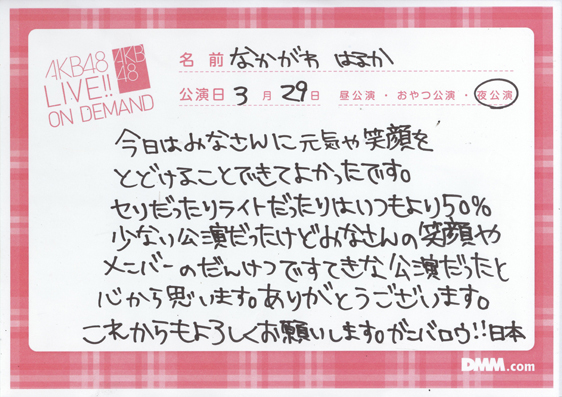 AKB48
LIVE!!
ON DEMAND
AKB
48
名前 なかがわ はるか
公演日 3月29日 昼公演・おやつ公演・夜公演
今日はみなさんに元気や笑顔を
とどけることできてよかったです。
セリだったりライトだったりはいつもより50%
少ない公演だったけどみなさんの笑顔や
メンバーのだんけつですてきな公演だったと
心から思います。ありがとうございます。
これからもよろしくお願いします。ガンバロウ!!日本
DMM.com